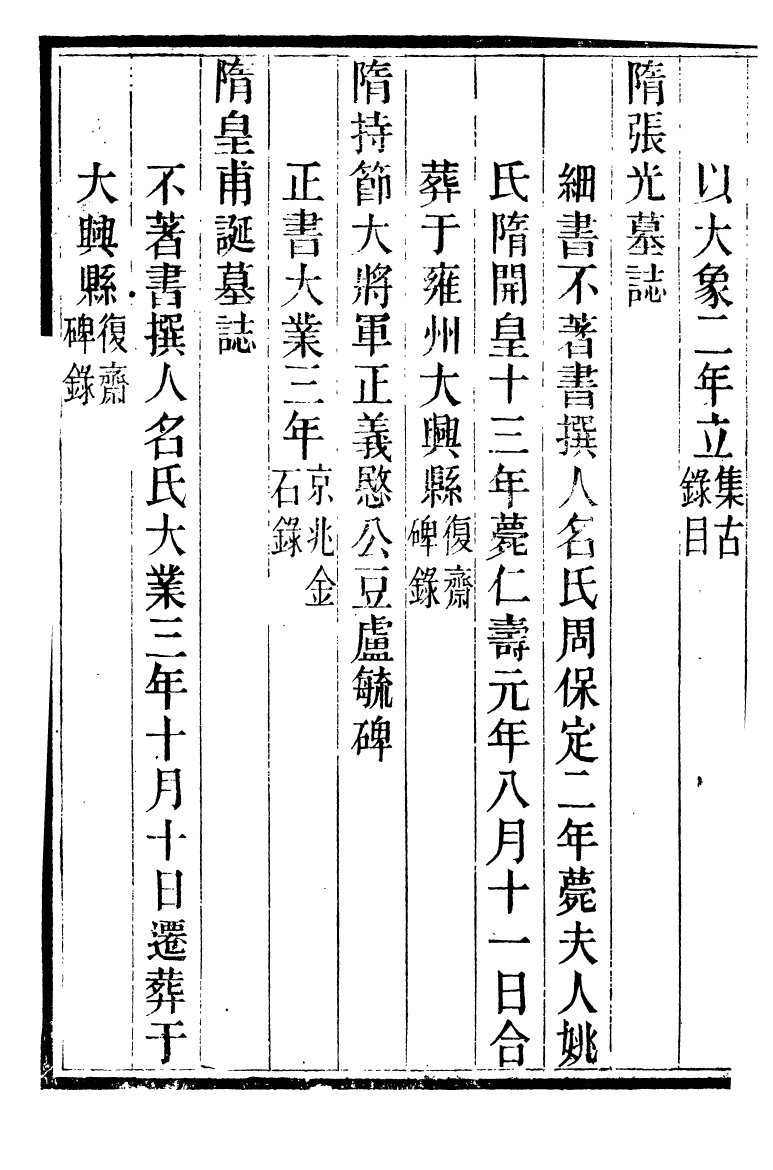 以大象二年立集古錄目
隋張光墓誌
細書不著書撰人名氏周保定二年薨夫人姚
氏隋開皇十三年薨仁壽元年八月十一日合
葬于雍州大興縣復齋碑錄
隋持節大將軍正義愍公豆盧毓碑
正書大業三年京兆金石錄
隋皇甫誕墓誌
不著書撰人名氏大業三年十月十日遷葬于
大興縣復齋碑錄